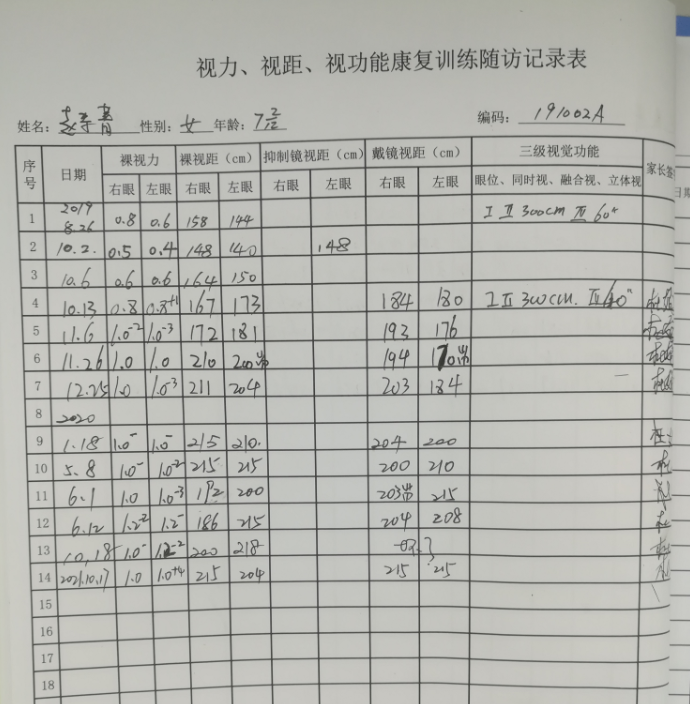 视力、视距、视功能康复训练随访记录表
姓名: 性别: 女 年龄: 7 2/12 编码: 191002A
序号 日期 裸视力 裸视距(cm) 抑制镜视距(cm) 戴镜视距(cm) 三级视觉功能 家长签
右眼 左眼 右眼 左眼 右眼 左眼 右眼 左眼 眼位、同时视、融合视、立体视 日期
1 2019 8.26 0.8 0.6 158 144 I II 300cm 60"
2 10.2. 0.5 0.4 148 140 148
3 10.6 0.6 0.6 164 150
4 10.13 0.8 0.8+1 167 173 184 180 I II 300cm.
5 11.6 1.0-2 1.0-3 172 181 193 176
6 11.26 1.0 1.0 210 200 194 170
7 12.25 1.0 1.0-3 211 204 203 184 —
8 2020
9 1.18 1.0- 1.0- 215 210. 204 200
10 5.8 1.0- 1.0-2 215 215 200 210
11 6.1 1.0 1.0-3 192 200 203 215
12 6.12 1.2-2 1.2- 186 215 204 208
13 10.18 1.0- 1.2-2 200 218
14 2021.10.17 1.0 1.0+4 215 204 215 215
15
16
17
18